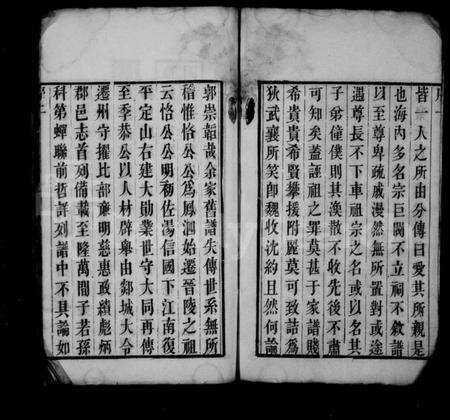 皆一人之所由分傳曰愛其所親是
也海內多名宗巨閥不立祠不敘譜
以至尊卑疏戚漫然無所置對或途
遇尊長不下車祖宗之名或以名其
子弟僮僕則其渙散不收先後不肅
可知矣蓋誣祖之罪莫甚于家譜賤
希貴貴希賢攀援附麗莫可致詰爲
狄武襄所笑卽魏收沈約且然何論
郭崇韜哉余家舊譜失傳世系無所
稽惟恪公公爲鳳泗始遷晉陵之祖
云恪公公明初佐湯信國下江南復
平定山右建大勛業世守大同再傳
至季恭公以人材辟舉由郯城大令
遷州守擢比部廉明慈惠政績彪炳
郡邑志首列備載至隆萬間子若孫
科第蟬聯前哲詳列譜中不具論如